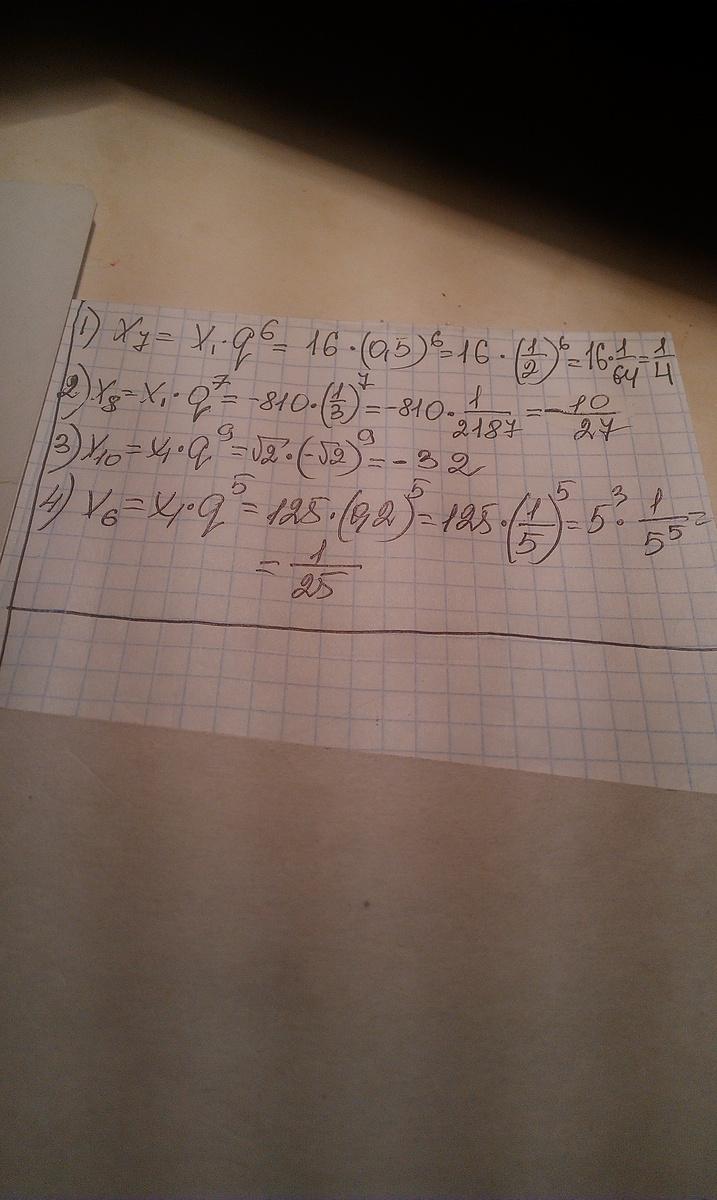 1) x₇ = x₁·q⁶ = 16·(0,5)⁶ = 16·(1/2)⁶ = 16·1/64 = 1/4
2) x₈ = x₁·q⁷ = -810·(1/3)⁷ = -810·1/2187 = -10/27
3) x₁₀ = x₁·q⁹ = √2·(-√2)⁹ = -32
4) x₆ = x₁·q⁵ = 125·(0,2)⁵ = 125·(1/5)⁵ = 5³·1/5⁵ =
= 1/25